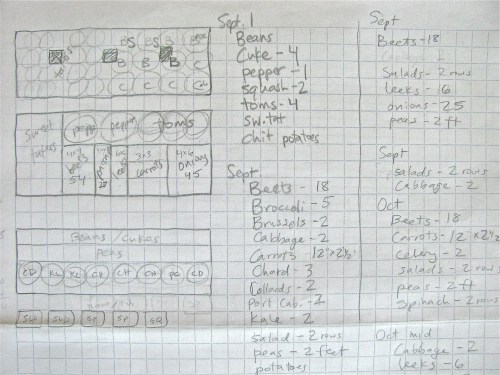 BS BS B
B B B
C C C
Sweet taters
pepp
pepper
toms
54
3x3 carrots
4x6 onions 45
Beans / cukes
Peas
CH
CH
Sept. 1
Beans
Cuke - 4
pepper - 1
squash - 2
toms - 4
sw. tat
chit potatoes
Sept
Beets - 18
Broccoli - 5
Brussels - 2
Cabbage - 2
Carrots 12"x2 1/2'
Chard - 3
Collards - 2
Port Cab. - 2
Kale - 2
salad - 2 rows
peas - 2 feet
potatoes
Sept
Beets - 18
Salads - 2 rows
leeks - 6
onions - 25
peas - 2 ft
Sept
salads - 2 rows
Cabbage - 2
Oct
Beets - 18
Carrots - 12"x2 1/2
Celery - 2
salads - 2 rows
peas - 2 ft
Spinach - 2 rows
Oct mid
Cabbage - 2
leeks - 6